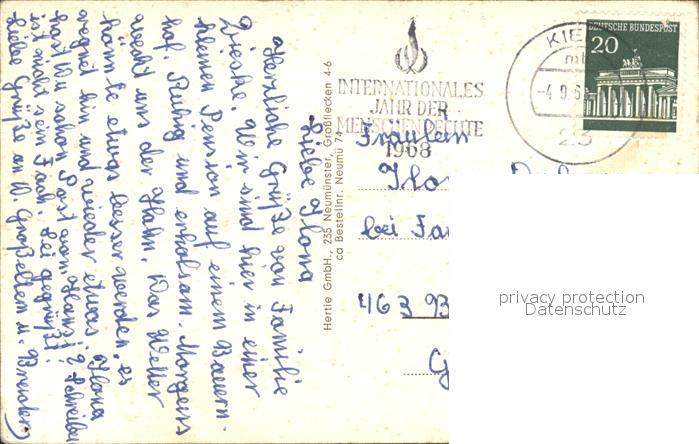 Liebe Ilona
Herzliche Grüße von Familie
Zieske. Wir sind hier in einer
kleinen Pension auf einem Bauern-
hof. Ruhig und erholsam. Morgens
weckt uns der Hahn. Das Wetter
könnte etwas besser werden, es
regnet hin und wieder etwas. Ilona
hast du schon Post vom Hansi? Schreiben
ist nicht sein Fach. Sei gegrüßt!
Liebe Grüße an d. Großeltern u.
Hertie GmbH., 235 Neumünster, Großflecken 4-6
ca Bestellnr. Neumü 74
INTERNATIONALES
JAHR DER
MENSCHENRECHTE
1968
KIE
-4.9.6
23
DEUTSCHE BUNDESPOST
20
Fräulein
Ilo
bei Fa
463
privacy protection
Datenschutz